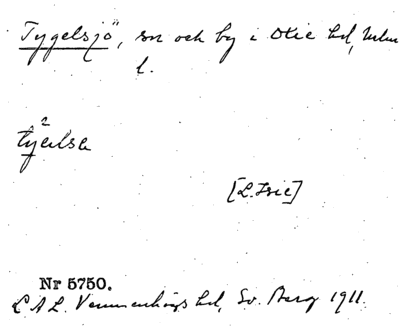 Tygelsjö, sn och by i Oxie hd, Malm.
l.
tyælsa
[L. Isie]
Nr 5750.
L A L. Vemmenhögs hd, Sv. Berg 1911.